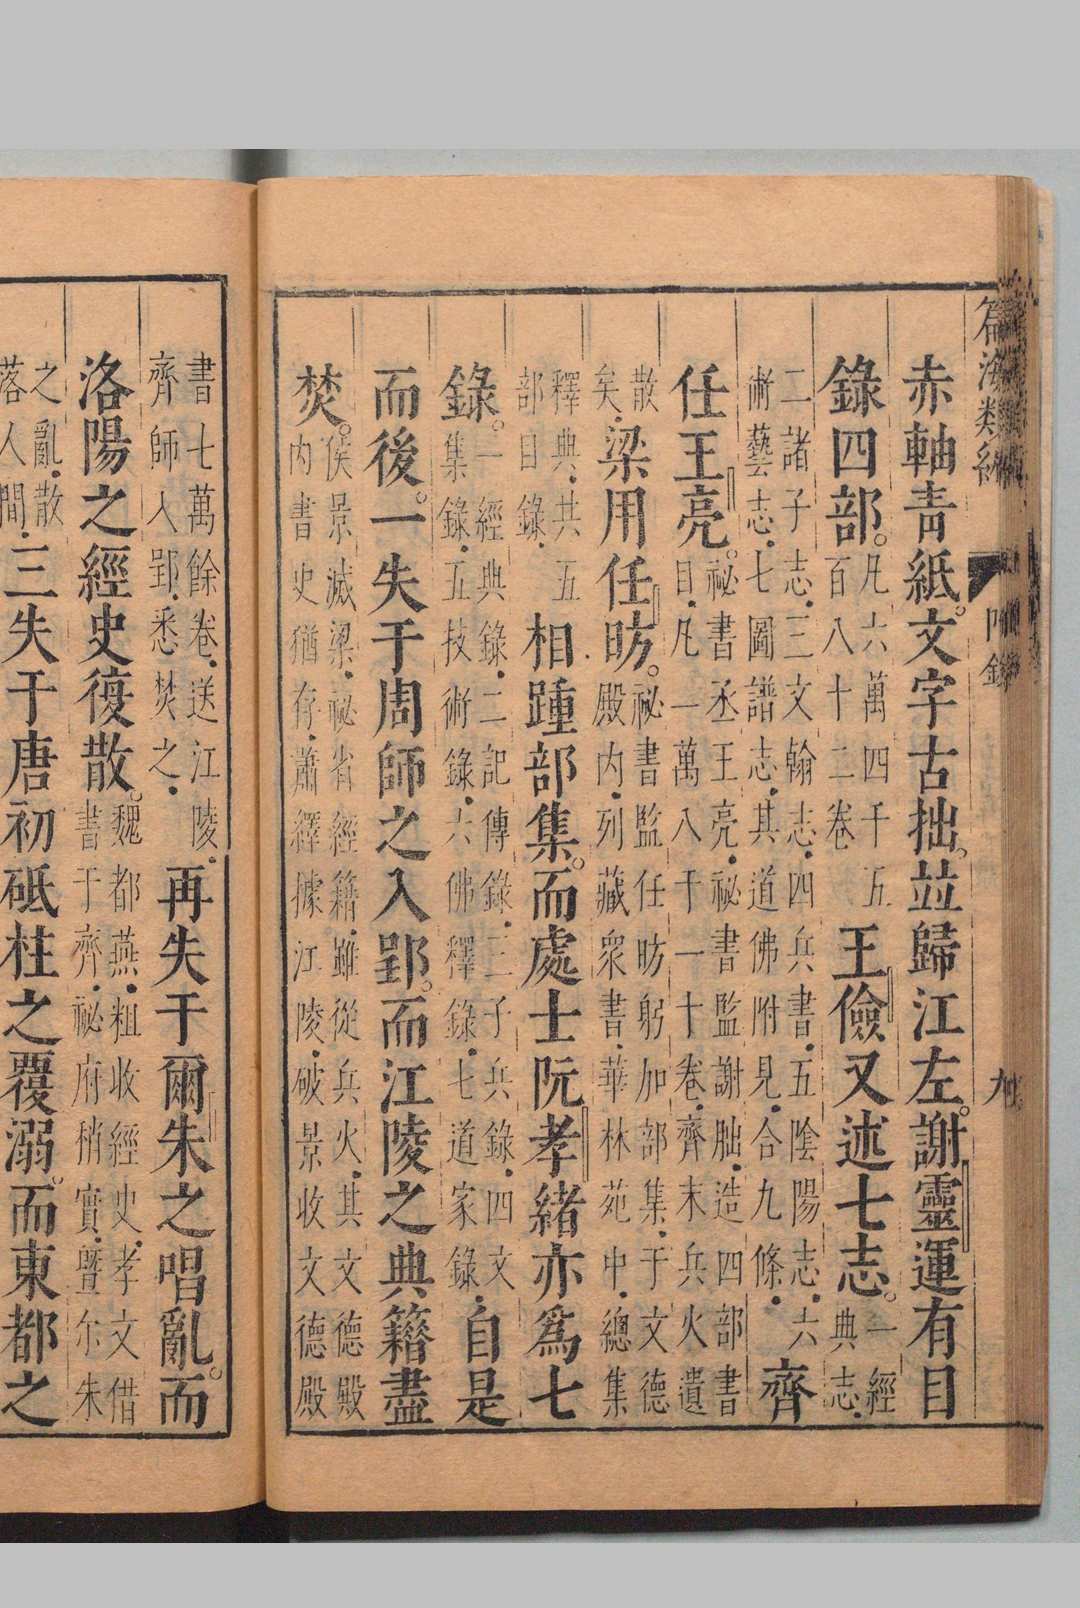 篇海類編 附錄 九
赤軸青紙。文字古拙。並歸江左。謝靈運有目
錄四部。凡六萬四千五
百八十二卷
王儉又述七志。一經
典志.
二諸子志.三文翰志.四兵書.五陰陽志.六
術藝志.七圖譜志.其道佛附見.合九條.
齊
任王亮。祕書丞王亮.祕書監謝朏.造四部書
目.凡一萬八千一十卷.齊末兵火遺
散
矣.
梁用任昉。祕書監任昉躬加部集.于文德
殿內.列藏衆書.華林苑中.總集
釋典.共五
部目錄.
相踵部集。而處士阮孝緒亦爲七
錄。一經典錄.二記傳錄.三子兵錄.四文
集錄.五技術錄.六佛釋錄.七道家錄.
自是
而後。一失于周師之入郢。而江陵之典籍盡
焚。侯景滅梁.祕省經籍.雖從兵火.其文德殿
內書史猶存.蕭繹據江陵.破景收文德殿
書七萬餘卷.送江陵.
齊師人郢.悉焚之.
再失于爾朱之唱亂。而
洛陽之經史復散。魏都燕.粗收經史.孝文借
書于齊.祕府稍實.曁尔朱
之亂.散
落人間.
三失于唐初砥柱之覆溺。而東都之